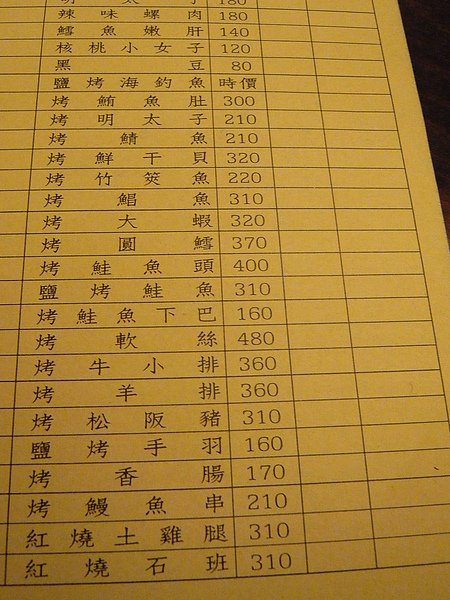 明太子 180
辣味螺肉 180
鱈魚嫩肝 140
核桃小女子 120
黑豆 80
鹽烤海釣魚 時價
烤鮪魚肚 300
烤明太子 210
烤鯖魚 210
烤鮮干貝 320
烤竹筴魚 220
烤鯧魚 310
烤大蝦 320
烤圓鱈 370
烤鮭魚頭 400
鹽烤鮭魚 310
烤鮭魚下巴 160
烤軟絲 480
烤牛小排 360
烤羊排 360
烤松阪豬 310
鹽烤手羽 160
烤香腸 170
烤鰻魚串 210
紅燒土雞腿 310
紅燒石班 310